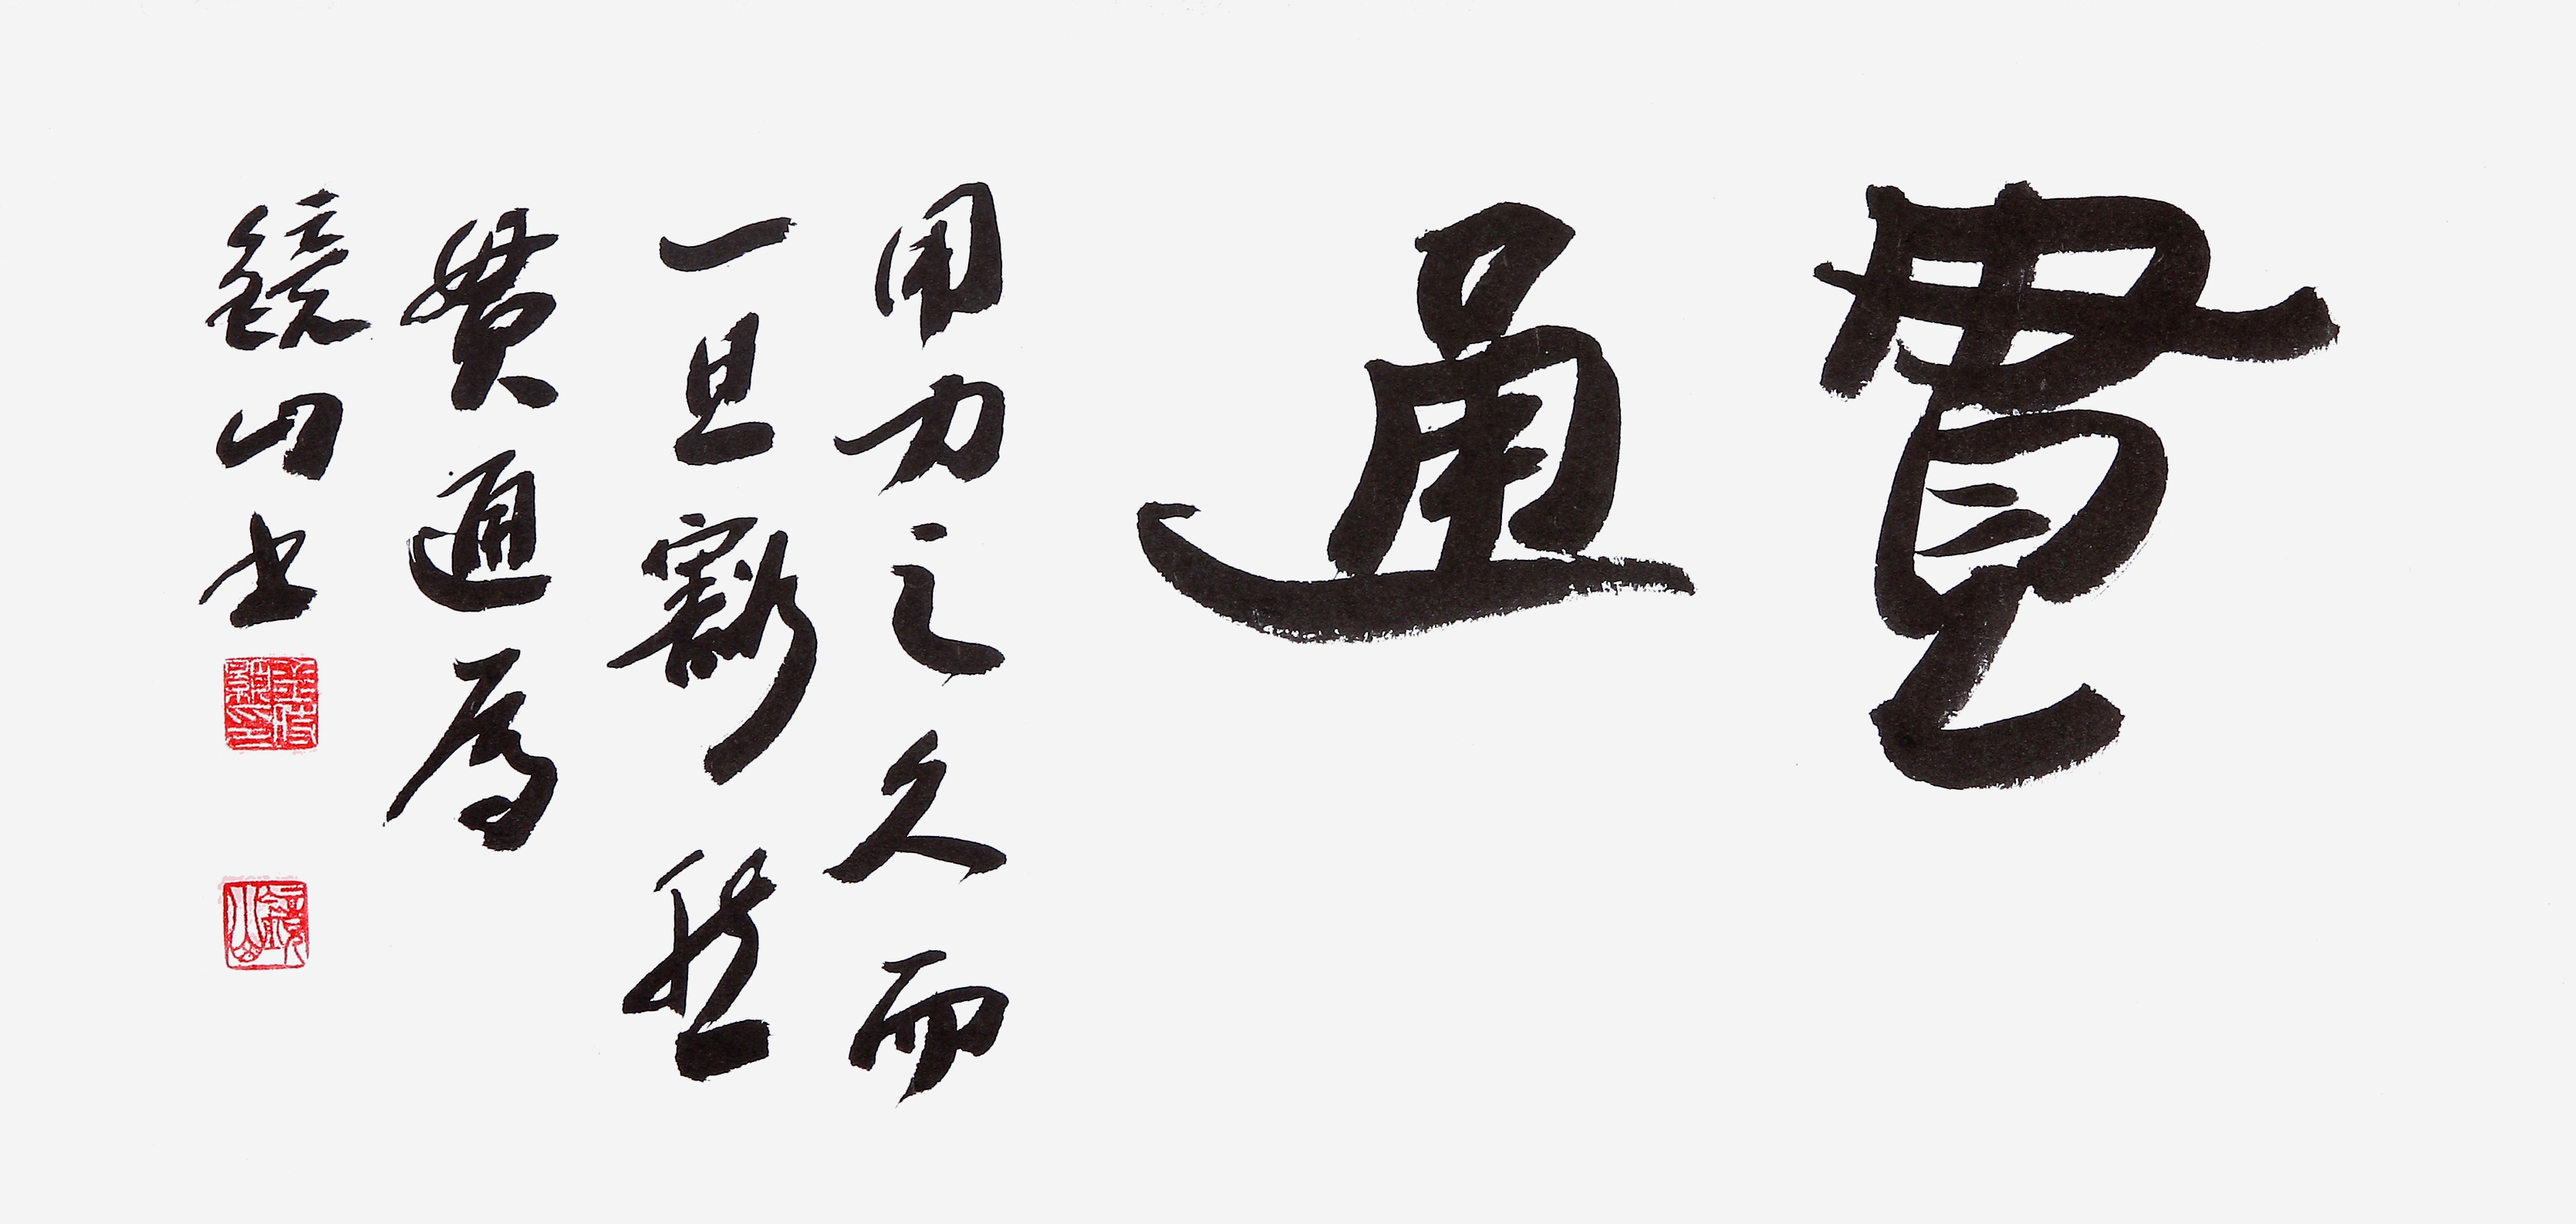 貫通
用力之久而
一旦豁然
貫通焉
鏡山書
鏡山